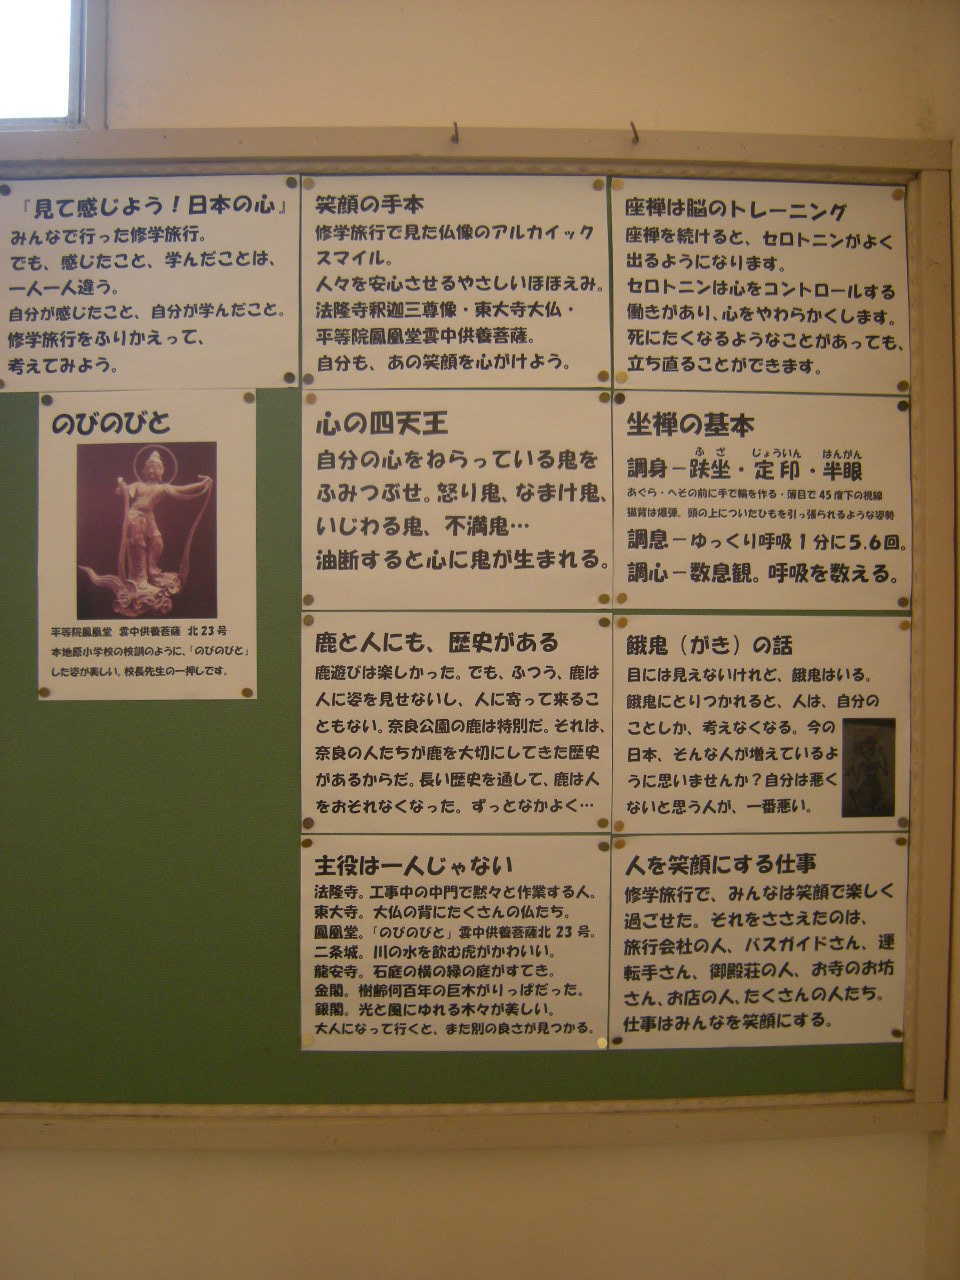 『見て感じよう！日本の心』
みんなで行った修学旅行。
でも、感じたこと、学んだことは、
一人一人違う。
自分が感じたこと、自分が学んだこと。
修学旅行をふりかえって、
考えてみよう。
のびのびと
平等院鳳凰堂 雲中供養菩薩 北23号
本地原小学校の校訓のように、「のびのびと」
した姿が美しい。校長先生の一押しです。
笑顔の手本
修学旅行で見た仏像のアルカイック
スマイル。
人々を安心させるやさしいほほえみ。
法隆寺釈迦三尊像・東大寺大仏・
平等院鳳凰堂雲中供養菩薩。
自分も、あの笑顔を心がけよう。
心の四天王
自分の心をねらっている鬼を
ふみつぶせ。怒り鬼、なまけ鬼、
いじわる鬼、不満鬼…
油断すると心に鬼が生まれる。
鹿と人にも、歴史がある
鹿遊びは楽しかった。でも、ふつう、鹿は
人に姿を見せないし、人に寄って来るこ
ともない。奈良公園の鹿は特別だ。それは、
奈良の人たちが鹿を大切にしてきた歴史
があるからだ。長い歴史を通して、鹿は人
をおそれなくなった。ずっとなかよく…
主役は一人じゃない
法隆寺。工事中の中門で黙々と作業する人。
東大寺。大仏の背にたくさんの仏たち。
鳳凰堂。「のびのびと」雲中供養菩薩北23号。
二条城。川の水を飲む虎がかわいい。
龍安寺。石庭の横の緑の庭がすてき。
金閣。樹齢何百年の巨木がりっぱだった。
銀閣。光と風にゆれる木々が美しい。
大人になって行くと、また別の良さが見つかる。
座禅は脳のトレーニング
座禅を続けると、セロトニンがよく
出るようになります。
セロトニンは心をコントロールする
働きがあり、心をやわらかくします。
死にたくなるようなことがあっても、
立ち直ることができます。
坐禅の基本
ふざ じょういん はんがん
調身－趺坐・定印・半眼
あぐら・へその前に手で輪を作る・薄目で45度下の視線
猫背は爆弾。頭の上についたひもを引っ張られるような姿勢
調息－ゆっくり呼吸1分に5.6回。
調心－数息観。呼吸を数える。
餓鬼（がき）の話
目には見えないけれど、餓鬼はいる。
餓鬼にとりつかれると、人は、自分の
ことしか、考えなくなる。今の
日本、そんな人が増えているよ
うに思いませんか？自分は悪く
ないと思う人が、一番悪い。
人を笑顔にする仕事
修学旅行で、みんなは笑顔で楽しく
過ごせた。それをささえたのは、
旅行会社の人、バスガイドさん、運
転手さん、御殿荘の人、お寺のお坊
さん、お店の人、たくさんの人たち。
仕事はみんなを笑顔にする。